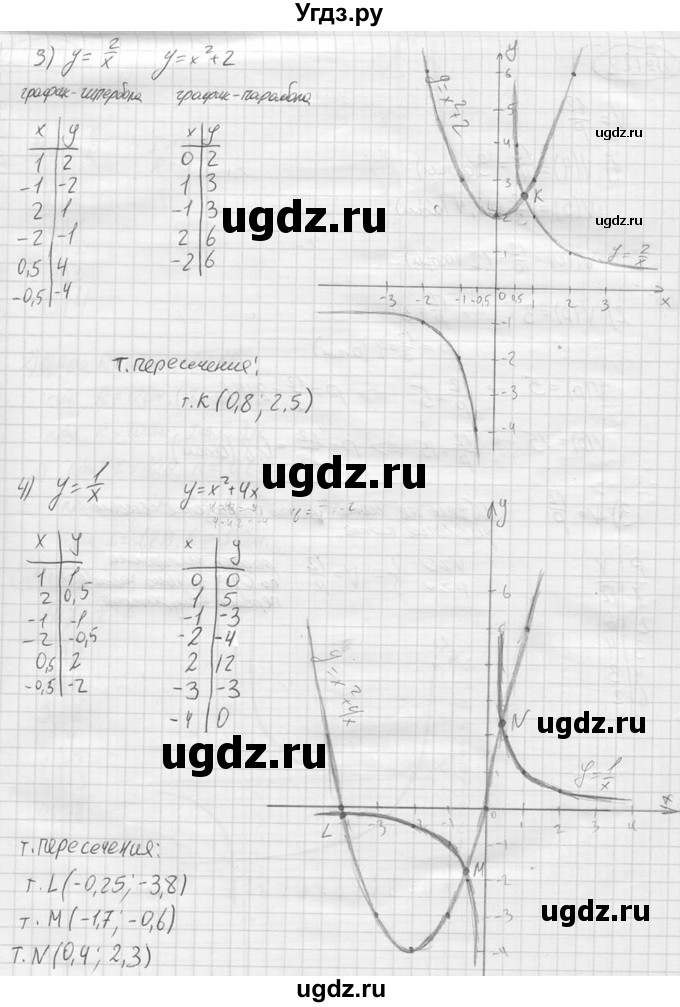 Угдз.ру
3) y = 2/x    y = x² + 2
график-гипербола    график-парабола
x | y    x | y
1 | 2    0 | 2
-1 | -2    1 | 3
2 | 1    -1 | 3
-2 | -1    2 | 6
0,5 | 4    -2 | 6
-0,5 | -4
y
6
5
4
3
2
1
y = x² + 2
K
y = 2/x
-3 -2 -1 -0,5 0 0,5 1 2 3 x
-1
-2
-3
-4
ugdz.ru
ugdz.ru
ugdz.ru
т. пересечения:
т. K (0,8; 2,5)
ugdz.ru
4) y = 1/x    y = x² + 4x
x | y    x | y
1 | 1    0 | 0
2 | 0,5    1 | 5
-1 | -1    -1 | -3
-2 | -0,5    -2 | -4
0,5 | 2    2 | 12
-0,5 | -2    -3 | -3
-4 | 0
y
6
y = x² + 4x
N
y = 1/x
L -3 -2 -1 0 1 2 3 4 x
M
-2
-3
-4
ugdz.ru
ugdz.ru
т. пересечения:
т. L (-0,25; -3,8)
т. M (-1,7; -0,6)
т. N (0,4; 2,3)
ugdz.ru
ugdz.ru
ugdz.ru